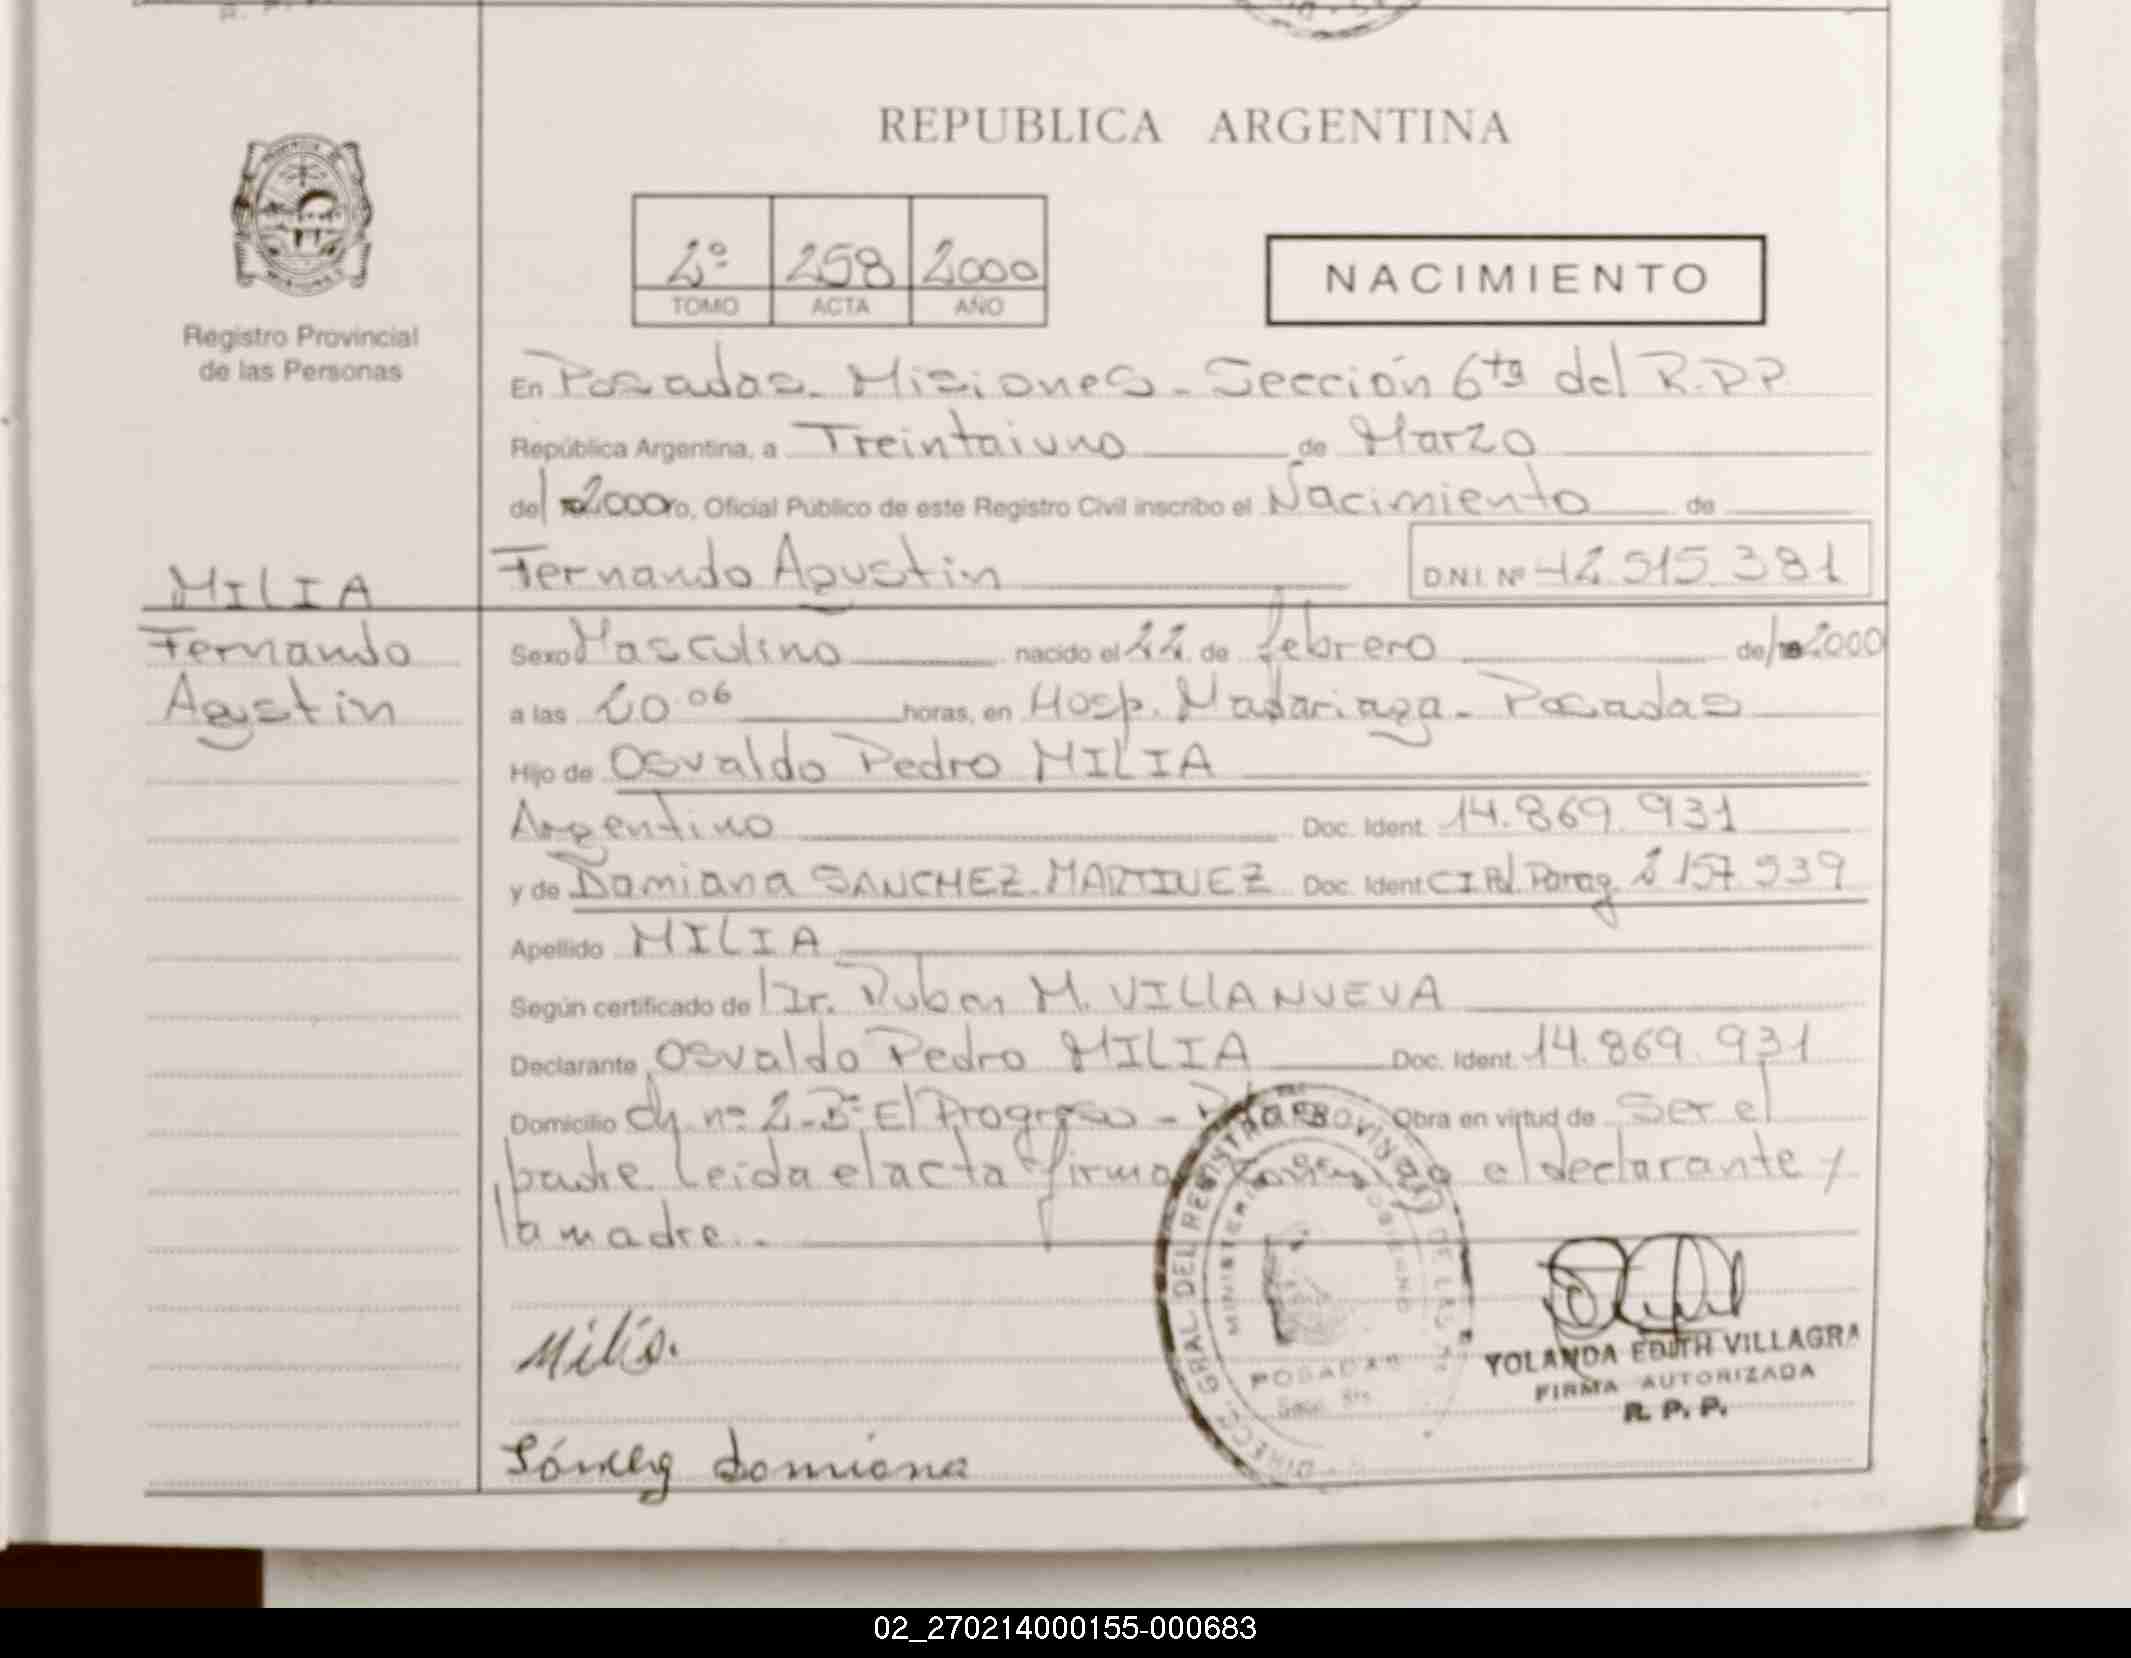 REPUBLICA ARGENTINA
2º 258 2000
TOMO ACTA AÑO
NACIMIENTO
Registro Provincial
de las Personas
En Posadas - Misiones - Sección 6ta del R.P.P
República Argentina, a Treintaiuno de Marzo
del 2000 yo, Oficial Público de este Registro Civil inscribo el Nacimiento de
MILIA
Fernando
Agustin
Fernando Agustin D.N.I. Nº 42.515.381
Sexo Masculino nacido el 22 de febrero del 2000
a las 20.06 horas, en Hosp. Madariaga - Posadas
Hijo de Osvaldo Pedro MILIA
Argentino Doc. Ident. 14.869.931
y de Damiana SANCHEZ MARTINEZ Doc. Ident CI Pol. Parag. 2 157.939
Apellido MILIA
Según certificado de Dr. Ruben M. VILLANUEVA
Declarante Osvaldo Pedro MILIA Doc. Ident. 14.869.931
Domicilio Ch. nº 2 - Bº El Progreso - Pdas Obra en virtud de Ser el
padre. Leida el acta firma conmigo el declarante y
la madre..
DIRECC. GRAL. DEL REGISTRO PROVINCIAL DE LAS
MINISTERIO GOBIERNO
POSADAS
Milia.
YOLANDA EDITH VILLAGRA
FIRMA AUTORIZADA
R. P. P.
Sánchez Damiana
02_270214000155-000683